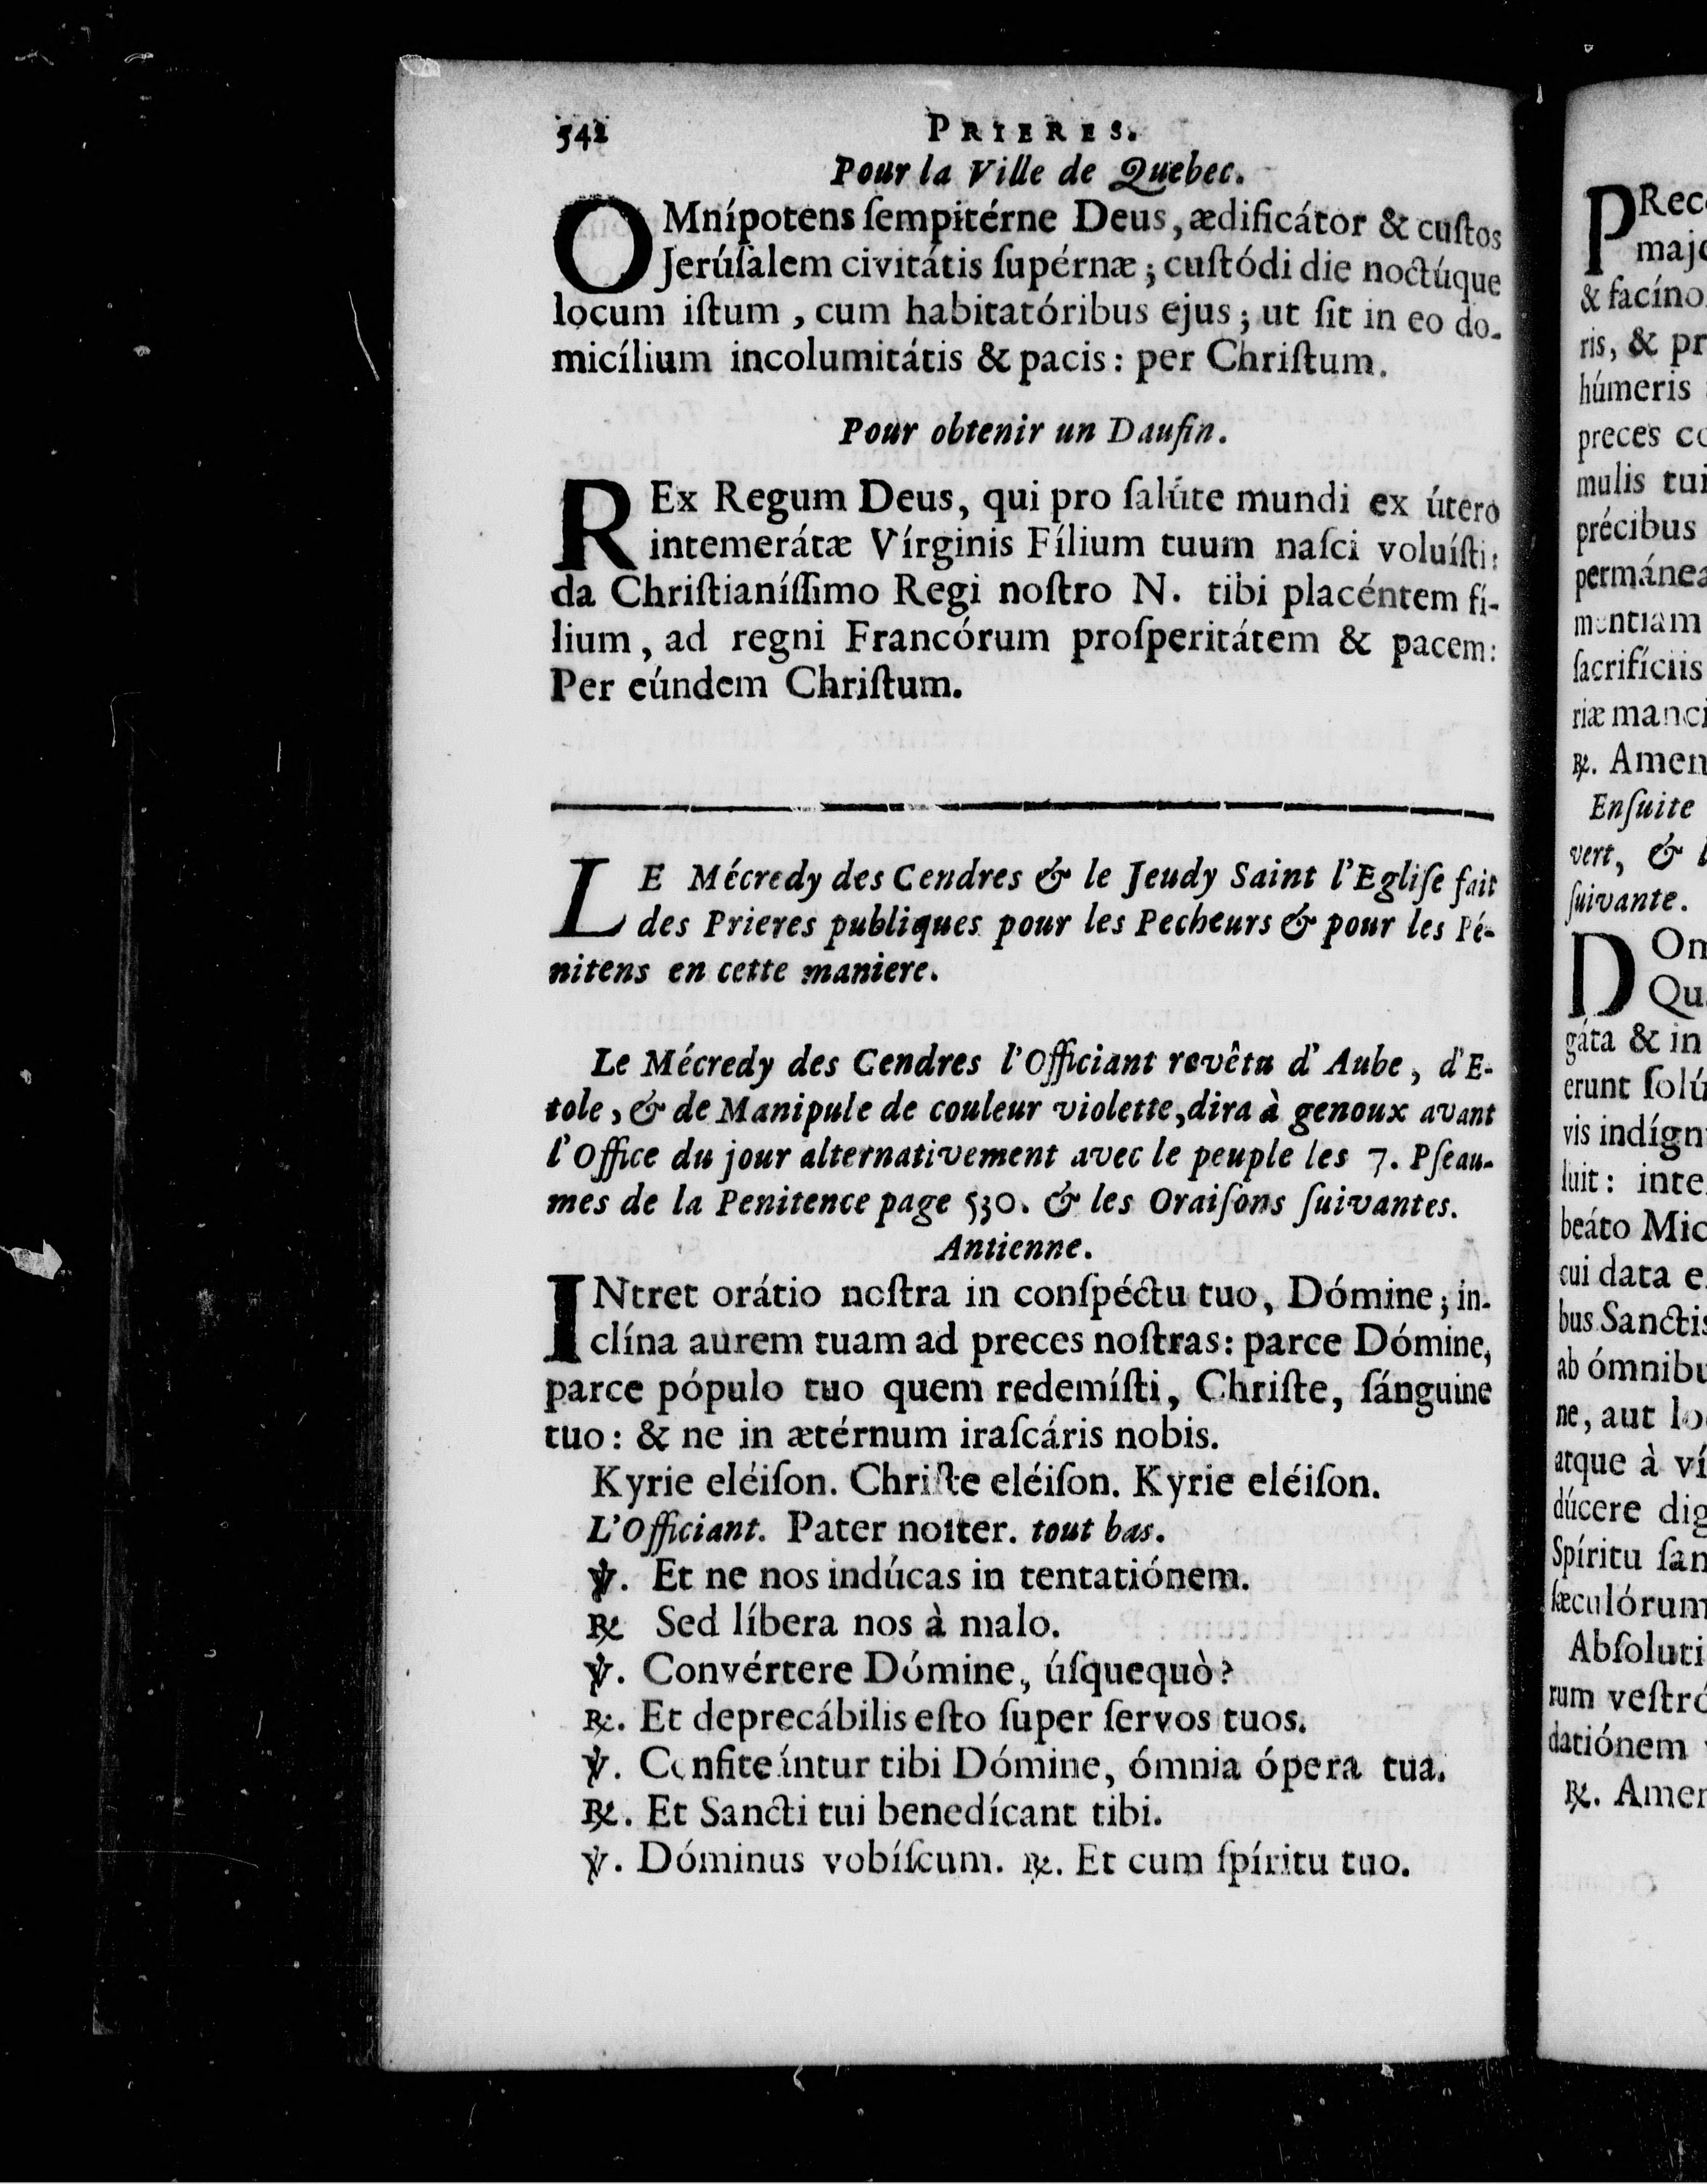 542 PRIERES.
Pour la Ville de Quebec.
OMnípotens ſempitérne Deus, ædificátor & cuſtos
Jerúſalem civitátis ſupérnæ ; cuſtódi die noctúque
locum iſtum , cum habitatóribus ejus ; ut ſit in eo do-
micílium incolumitátis & pacis : per Chriſtum.
Pour obtenir un Daufin.
REx Regum Deus, qui pro ſalúte mundi ex útero
intemerátæ Vírginis Fílium tuum naſci voluíſti:
da Chriſtianíſſimo Regi noſtro N. tibi placéntem fí-
lium , ad regni Francórum proſperitátem & pacem:
Per eúndem Chriſtum.
LE Mécredy des Cendres & le Jeudy Saint l'Egliſe fait
des Prieres publiques pour les Pecheurs & pour les Pé-
nitens en cette maniere.
Le Mécredy des Cendres l'Officiant revêtu d'Aube, d'E-
tole, & de Manipule de couleur violette, dira à genoux avant
l'Office du jour alternativement avec le peuple les 7. Pſeau-
mes de la Penitence page 530. & les Oraiſons ſuivantes.
Antienne.
INtret orátio noſtra in conſpéctu tuo, Dómine ; in-
clína aurem tuam ad preces noſtras : parce Dómine,
parce pópulo tuo quem redemíſti, Chriſte, ſánguine
tuo : & ne in ætérnum iraſcáris nobis.
Kyrie eléiſon. Chriſte eléiſon. Kyrie eléiſon.
L'Officiant. Pater noſter. tout bas.
℣. Et ne nos indúcas in tentatiónem.
℟ Sed líbera nos à malo.
℣. Convértere Dómine, úſquequò?
℟. Et deprecábilis eſto ſuper ſervos tuos.
℣. Confiteántur tibi Dómine, ómnia ópera tua.
℟. Et Sancti tui benedícant tibi.
℣. Dóminus vobíſcum. ℟. Et cum ſpíritu tuo.
& facíno
ris, & pr
húmeris
preces
mulis
précibus
ſacrifíciis
℟. Amen
Enſuite
vert, &
ſuivante.
gáta & in
erunt
luit : inte
beáto
cui data
bus Sanctis
ne, aut
atque à
dúcere
Spíritu
ſæculórum
datiónem
℟.